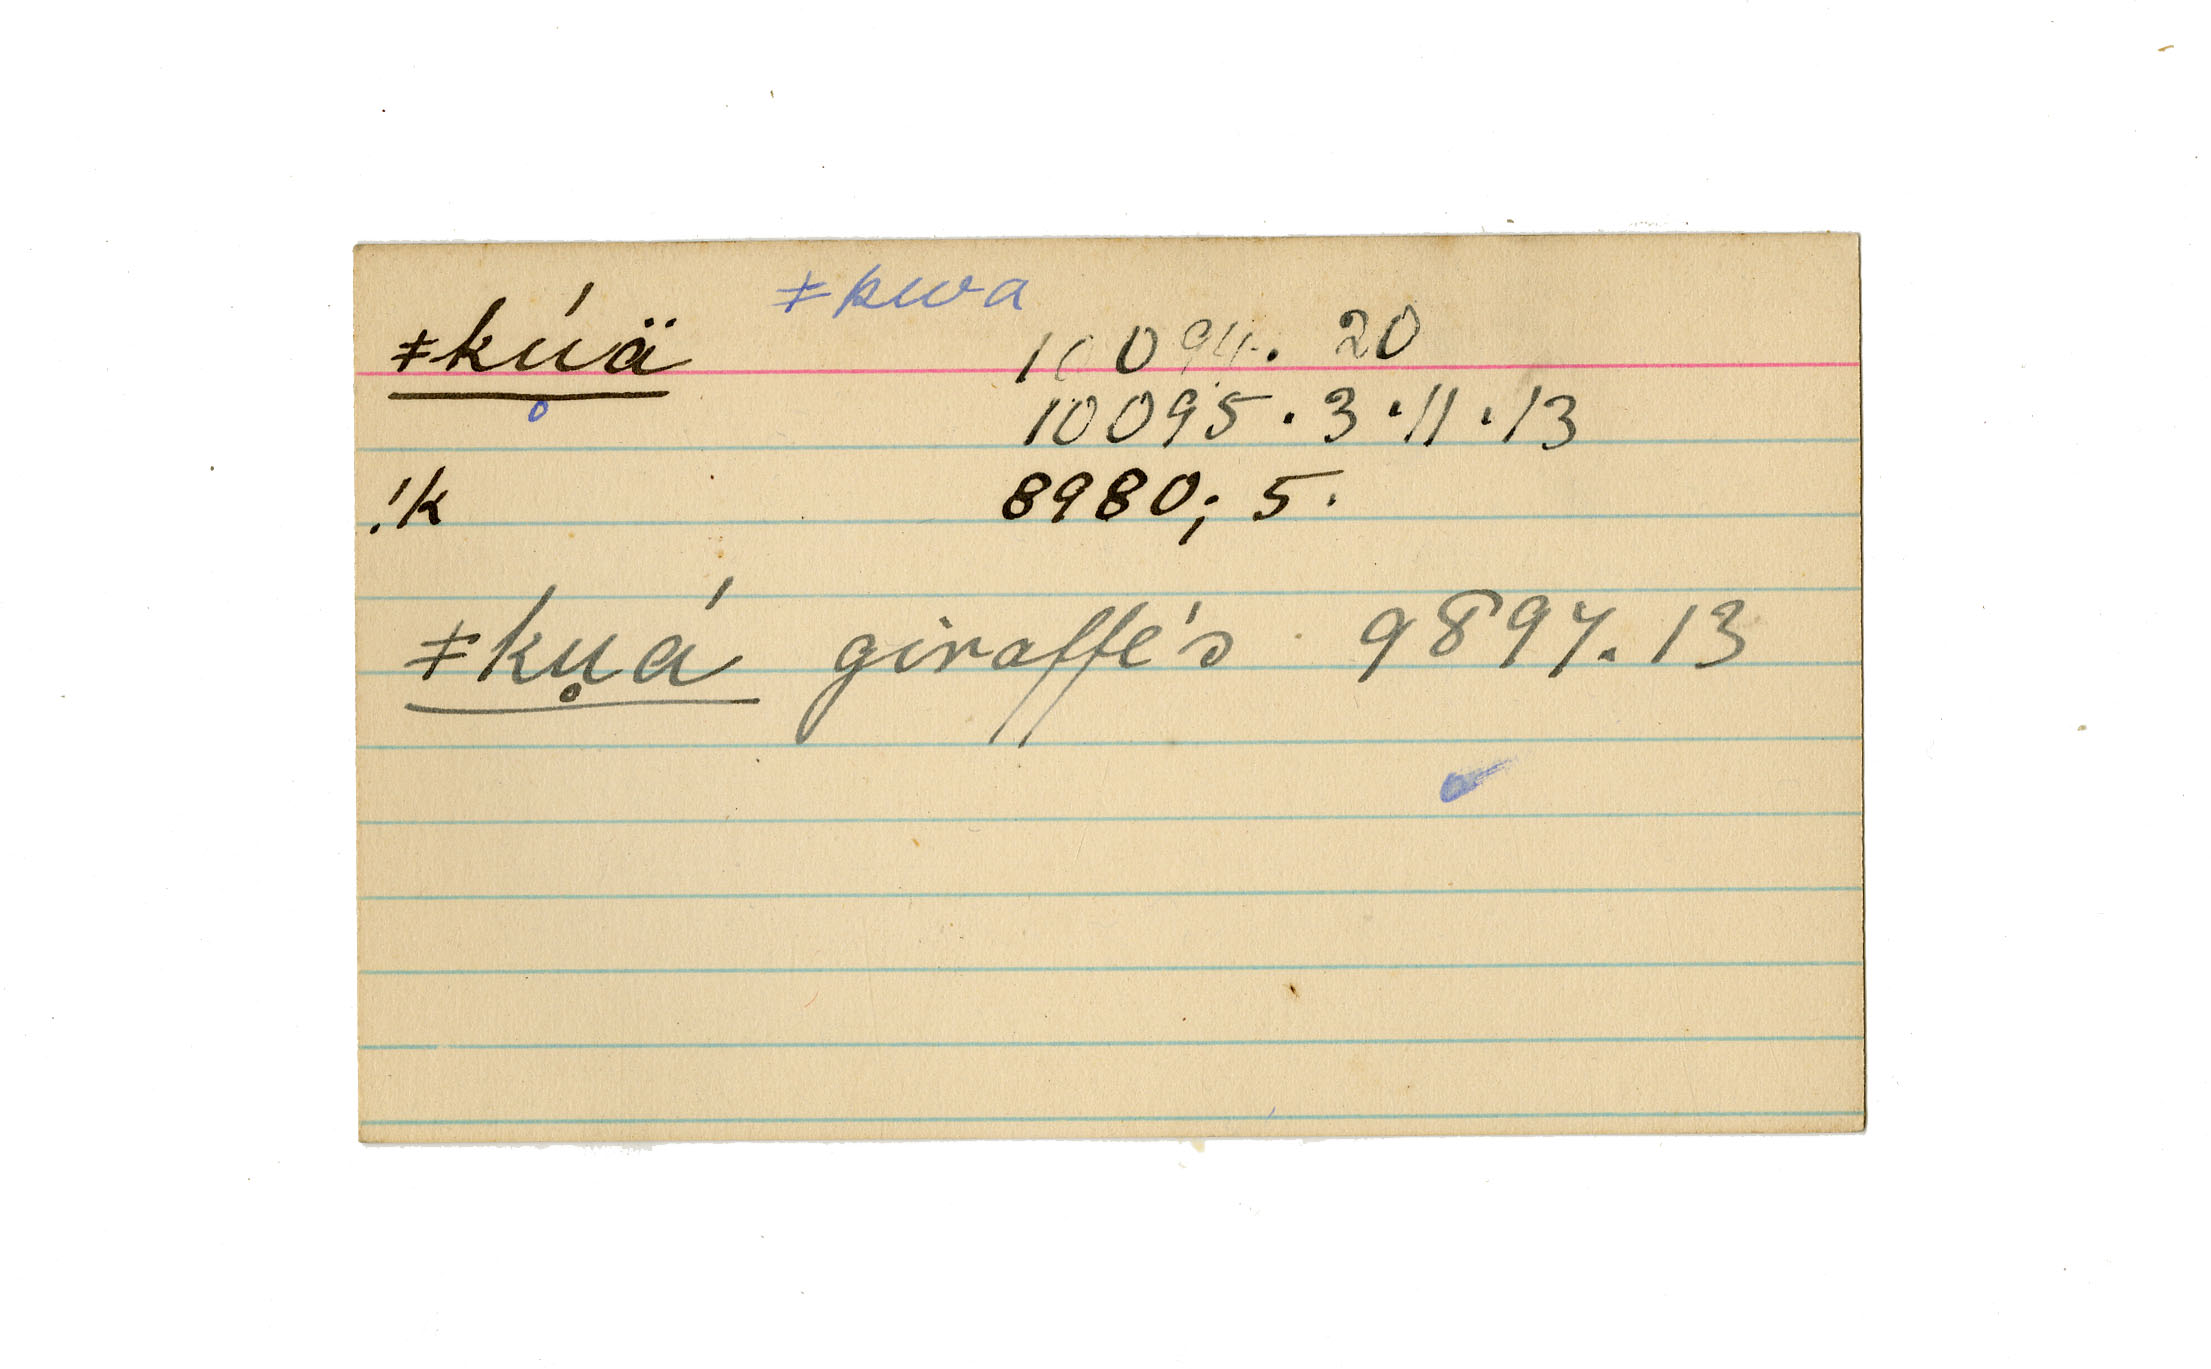 ǂkwa
ǂkúä 10094. 20
10095. 3. 11. 13
!k 8980; 5.
ǂkụá giraffe's 9897. 13